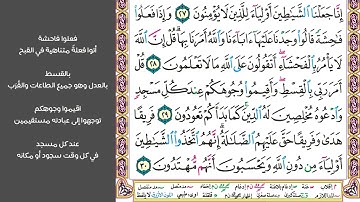 إِنَّا جَعَلْنَا الشَّيَاطِينَ أَوْلِيَاءَ لِلَّذِينَ لَا يُؤْمِنُونَ ٢٧ وَإِذَا فَعَلُوا
فَاحِشَةً قَالُوا وَجَدْنَا عَلَيْهَا آبَاءَنَا وَاللَّهُ أَمَرَنَا بِهَا قُلْ إِنَّ اللَّهَ
لَا يَأْمُرُ بِالْفَحْشَاءِ أَتَقُولُونَ عَلَى اللَّهِ مَا لَا تَعْلَمُونَ ٢٨ قُلْ
أَمَرَ رَبِّي بِالْقِسْطِ وَأَقِيمُوا وُجُوهَكُمْ عِندَ كُلِّ مَسْجِدٍ
وَادْعُوهُ مُخْلِصِينَ لَهُ الدِّينَ كَمَا بَدَأَكُمْ تَعُودُونَ ٢٩ فَرِيقًا
هَدَىٰ وَفَرِيقًا حَقَّ عَلَيْهِمُ الضَّلَالَةُ إِنَّهُمُ اتَّخَذُوا الشَّيَاطِينَ
أَوْلِيَاءَ مِن دُونِ اللَّهِ وَيَحْسَبُونَ أَنَّهُم مُّهْتَدُونَ ٣٠
فعلوا فاحشة
أتوا فعلة متناهية في القبح
بالقسط
بالعدل وهو جميع الطاعات والقُرَب
اقيموا وجوهكم
توجهوا إلى عبادته مستقيمين
عند كل مسجد
في كل وقت سجود أو مكانه